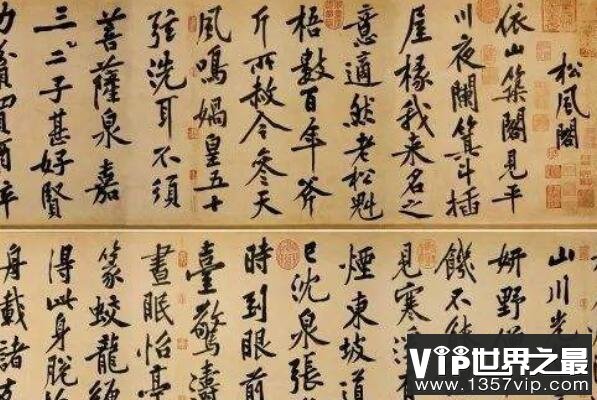 松風閣
依山築閣見平
川夜闌箕斗插
屋椽我來名之
意適然老松魁
梧數百年斧
斤所赦令參天
風鳴媧皇五十
弦洗耳不須
菩薩泉嘉
三二子甚好賢
力貧買酒醉
山川光
妍野僧
饑不能
見寒溪
煙東坡道
已沈泉張
時到眼前
臺驚濤
晝眠怡亭
篆蛟龍纏
得此身脫拘
身載諸友
VIP世界之最
www.1357vip.com